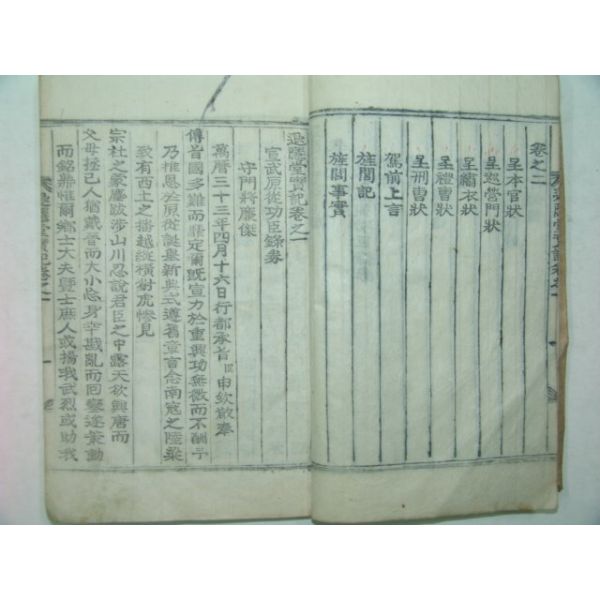 卷之二
呈本官狀
呈巡營門狀
呈繡衣狀
呈禮曹狀
呈刑曹狀
駕前上言
旌閭記
旌閭事實
堂實記卷之一
宣武原從功臣錄券
守門將廉傑
萬曆三十三年四月十六日行都承旨臣申欽敬奉
傳旨國多難而靡定爾旣宣力於重興功無微而不酬予
乃推恩於原從誕擧新典式遵舊章言念南寇之陸梁
致有西土之播越縱橫豺虎慘見
宗社之蒙塵跋涉山川忍說君臣之中露天欲興唐而
父母拯己人猶戴晉而大小忘身辛戡亂而回鑾遂策勳
而銘鼎惟爾鄕士大夫曁士庶人或揚我武烈或助我
堂實記卷之一
一